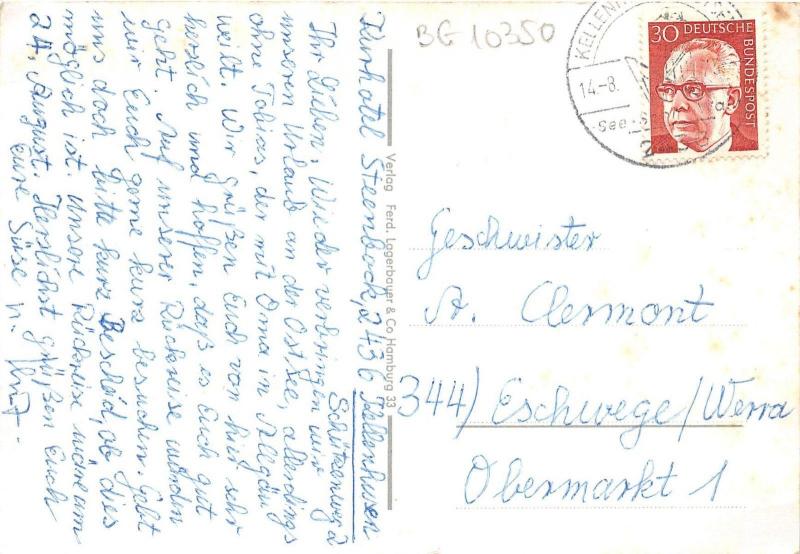 Kurhotel Steenbock, 2436 Kellenhusen
Schützenweg 2
Ihr Lieben, Wieder verbringen wir
unseren Urlaub an der Ostsee, allerdings
ohne Tobias, der mit Oma in Allgäu
weilt. Wir Grüßen Euch von hier sehr
herzlich und hoffen, daß es Euch gut
geht. Auf unserer Rückreise würden
wir Euch gerne kurz besuchen. Gebt
uns doch bitte kurz Bescheid, ob dies
möglich ist. Unsere Rückreise wäre am
24. August. Herzlichst grüßen Euch
Eure Suse u.
Verlag Ferd. Lagerbauer & Co Hamburg 33
BG 10350
KELLENH
14-8.
See
30 DEUTSCHE
BUNDESPOST
Geschwister
A. Clermont
344) Eschwege/Werra
Obermarkt 1